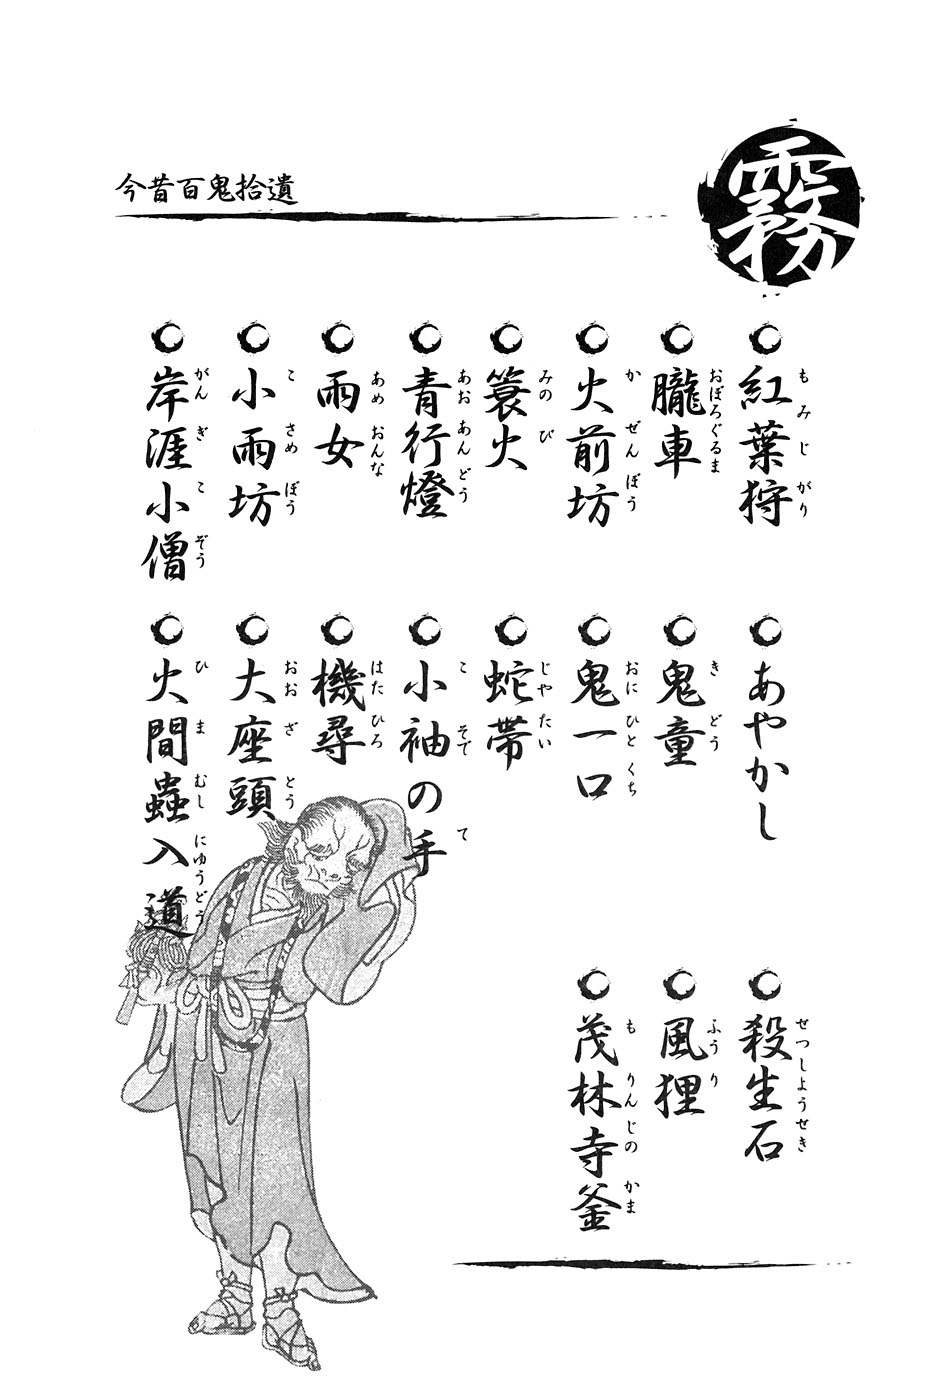 霧
今昔百鬼拾遺
紅葉狩
もみじがり
朧車
おぼろぐるま
火前坊
かぜんぼう
簑火
みのび
青行燈
あおあんどう
雨女
あめおんな
小雨坊
こさめぼう
岸涯小僧
がんぎこぞう
あやかし
鬼童
きどう
鬼一口
おにひとくち
蛇帯
じやたい
小袖の手
こそでて
機尋
はたひろ
大座頭
おおざとう
火間蟲入道
ひまむしにゆうどう
殺生石
せつしようせき
風狸
ふうり
茂林寺釜
もりんじのかま